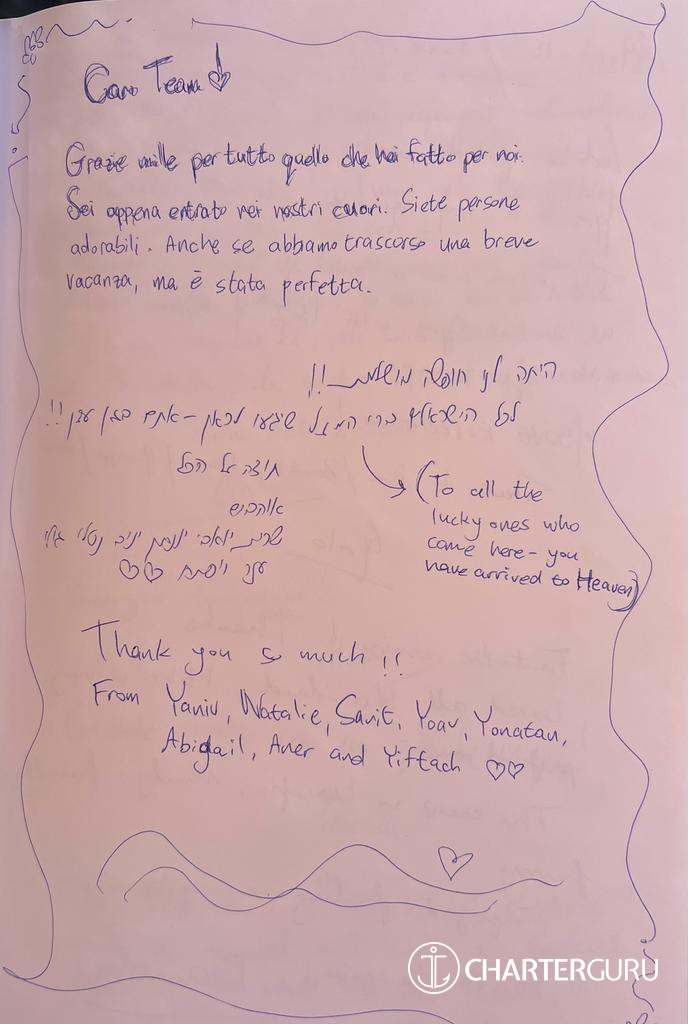 Caro Team
Grazie mille per tutto quello che hai fatto per noi.
Sei appena entrato nei nostri cuori. Siete persone
adorabili. Anche se abbamo trascorso una breve
vacanza, ma è stata perfetta.
היתה לנו חופשה מושלמת!!
לכל הישראלים ברי המזל שיגעו לכאן - אתם בגן עדן!!
תודה על הכל
אוהבים
שרית יואב יונתן יניב נטלי
ענר ויפתח
(To all the
lucky ones who
come here - you
have arrived to Heaven)
Thank you so much!!
From Yaniv, Natalie, Sarit, Yoav, Yonatan,
Abigail, Aner and Yiftach
CHARTERGURU